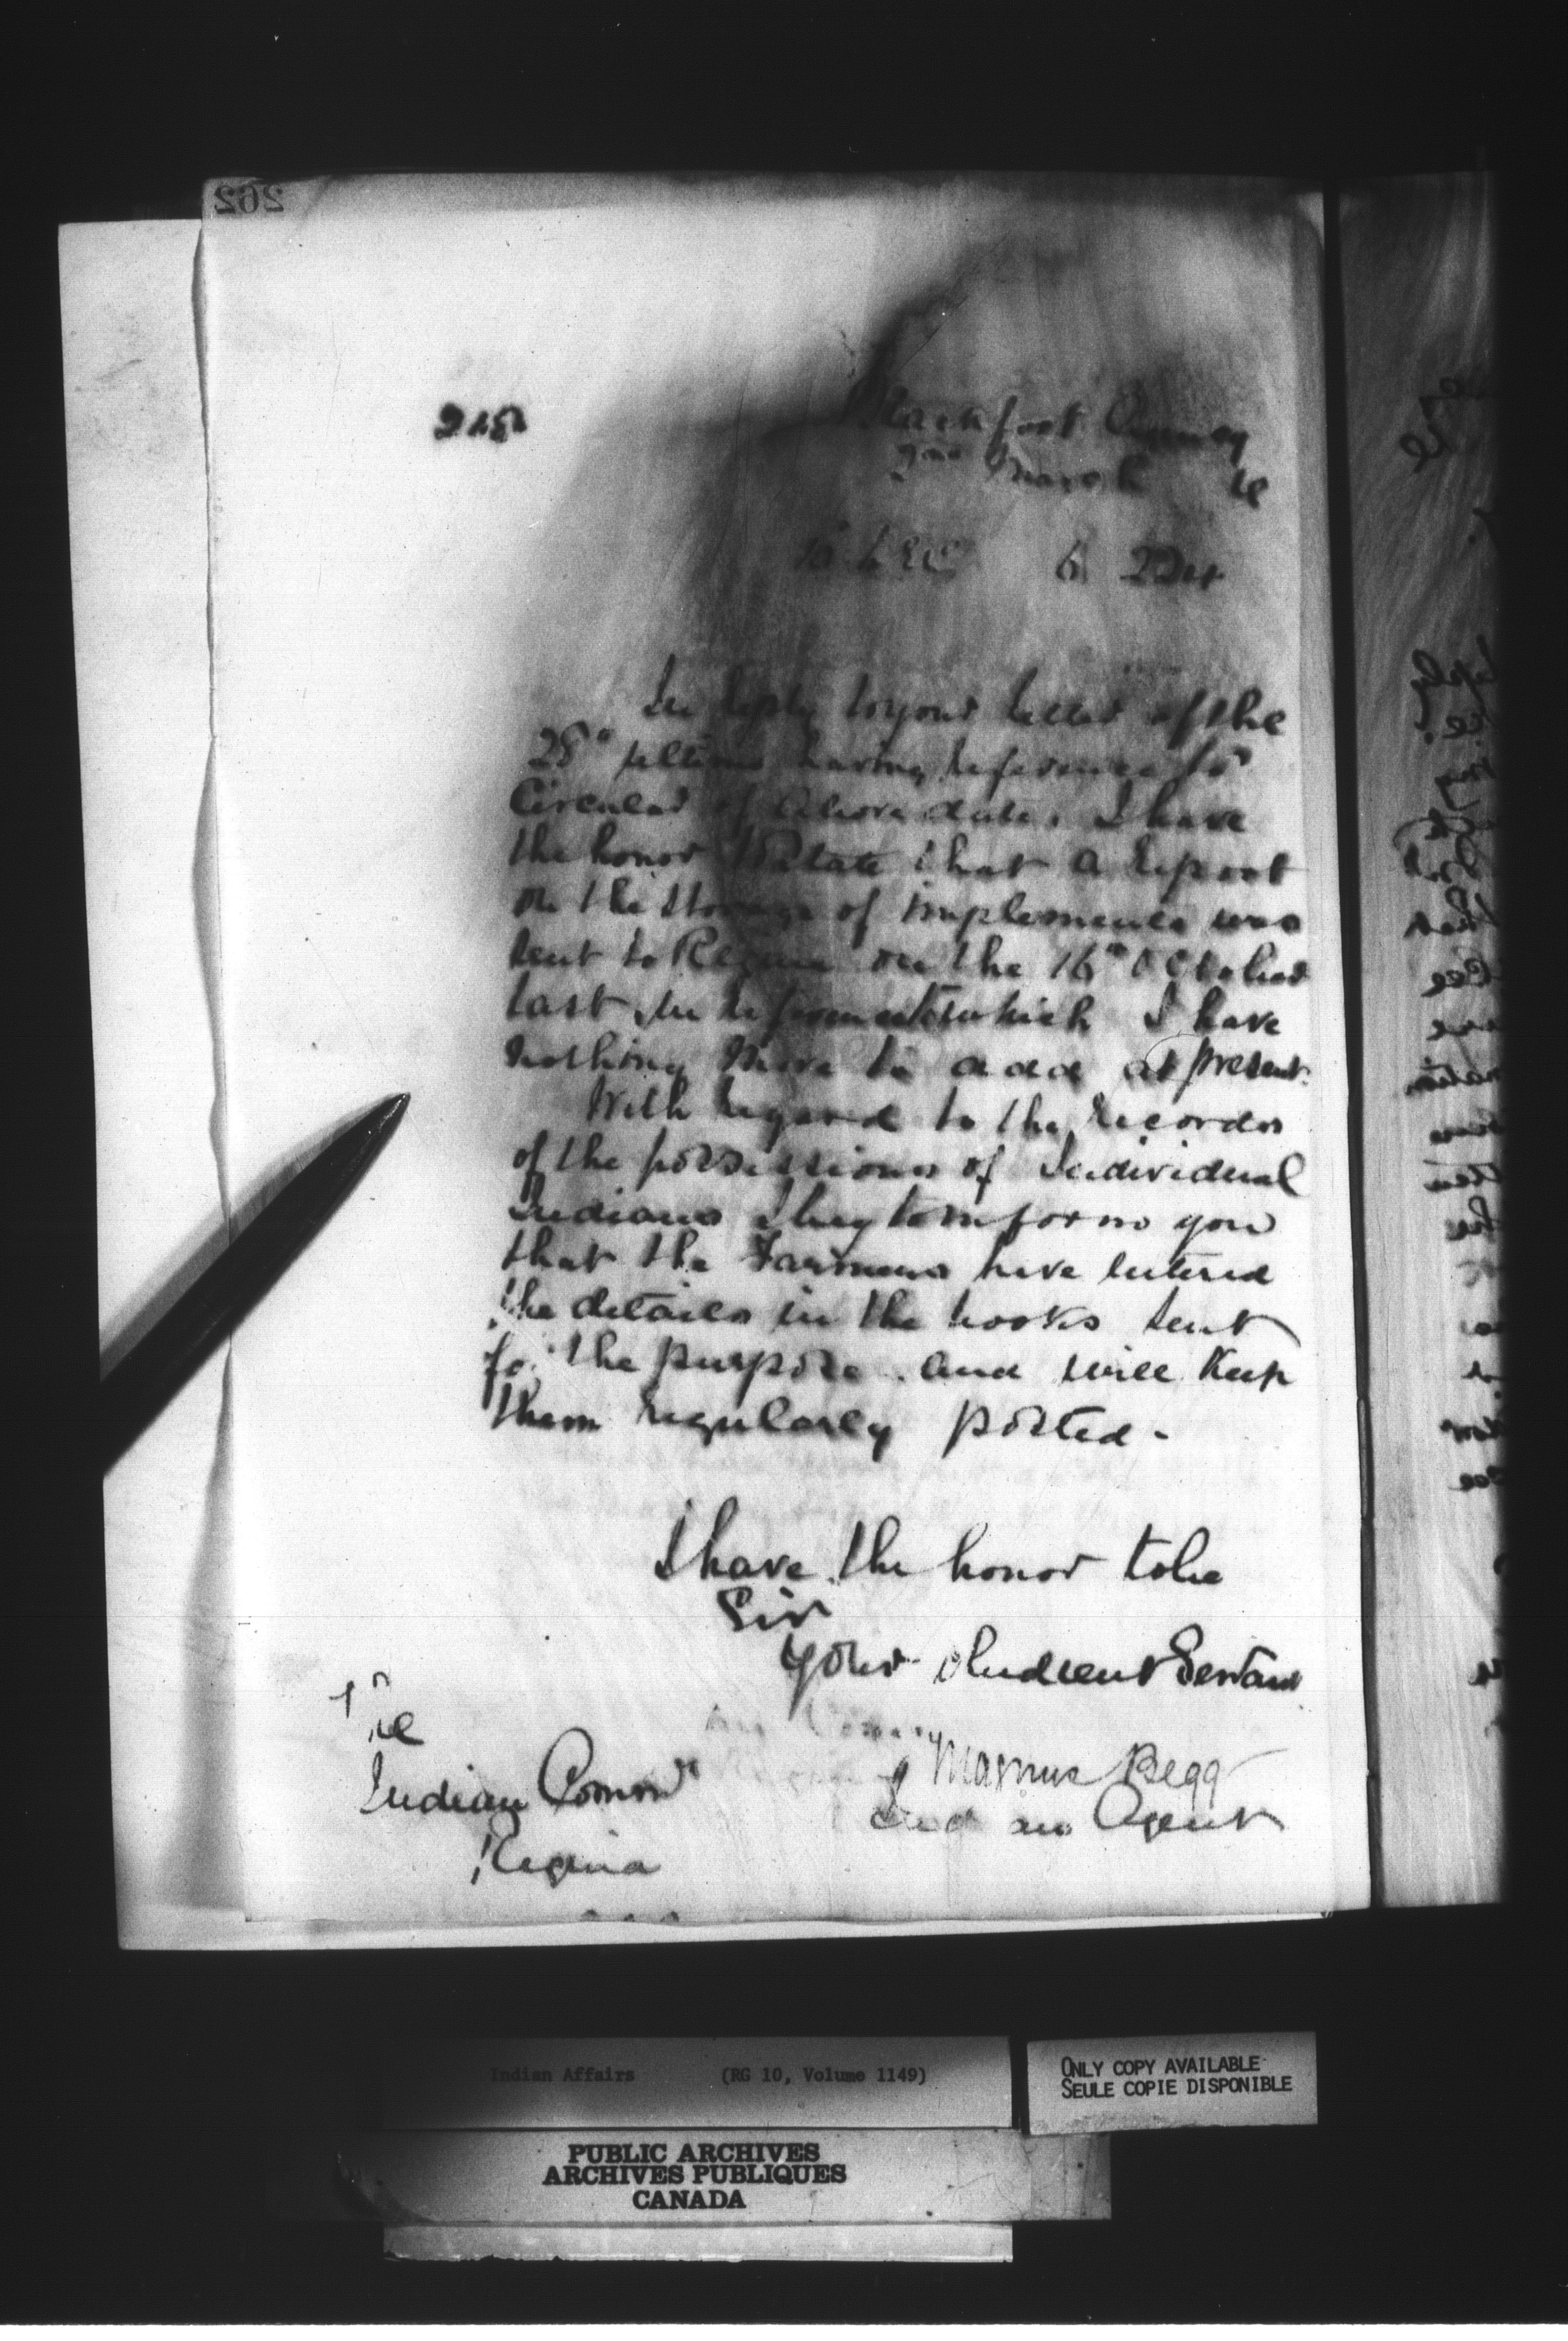 262
Blackfoot Agency
2nd March
In reply to your letter of the
28" ultimo having reference to
Circular of above date, I have
the honor to state that a report
on the storage of implements was
sent to Regina on the 16" October
last, in reference to which I have
nothing more to add at present.
With regard to the records
of the possessions of Individual
Indians I beg to inform you
that the Farmers have entered
the details in the books sent
for the purpose and will Keep
them regularly posted -
I have the honor to be
Sir
Your obedient Servant
Magnus Begg
Indian Agent
The
Indian Commr
Regina
Indian Affairs (RG 10, Volume 1149)
ONLY COPY AVAILABLE
SEULE COPIE DISPONIBLE
PUBLIC ARCHIVES
ARCHIVES PUBLIQUES
CANADA